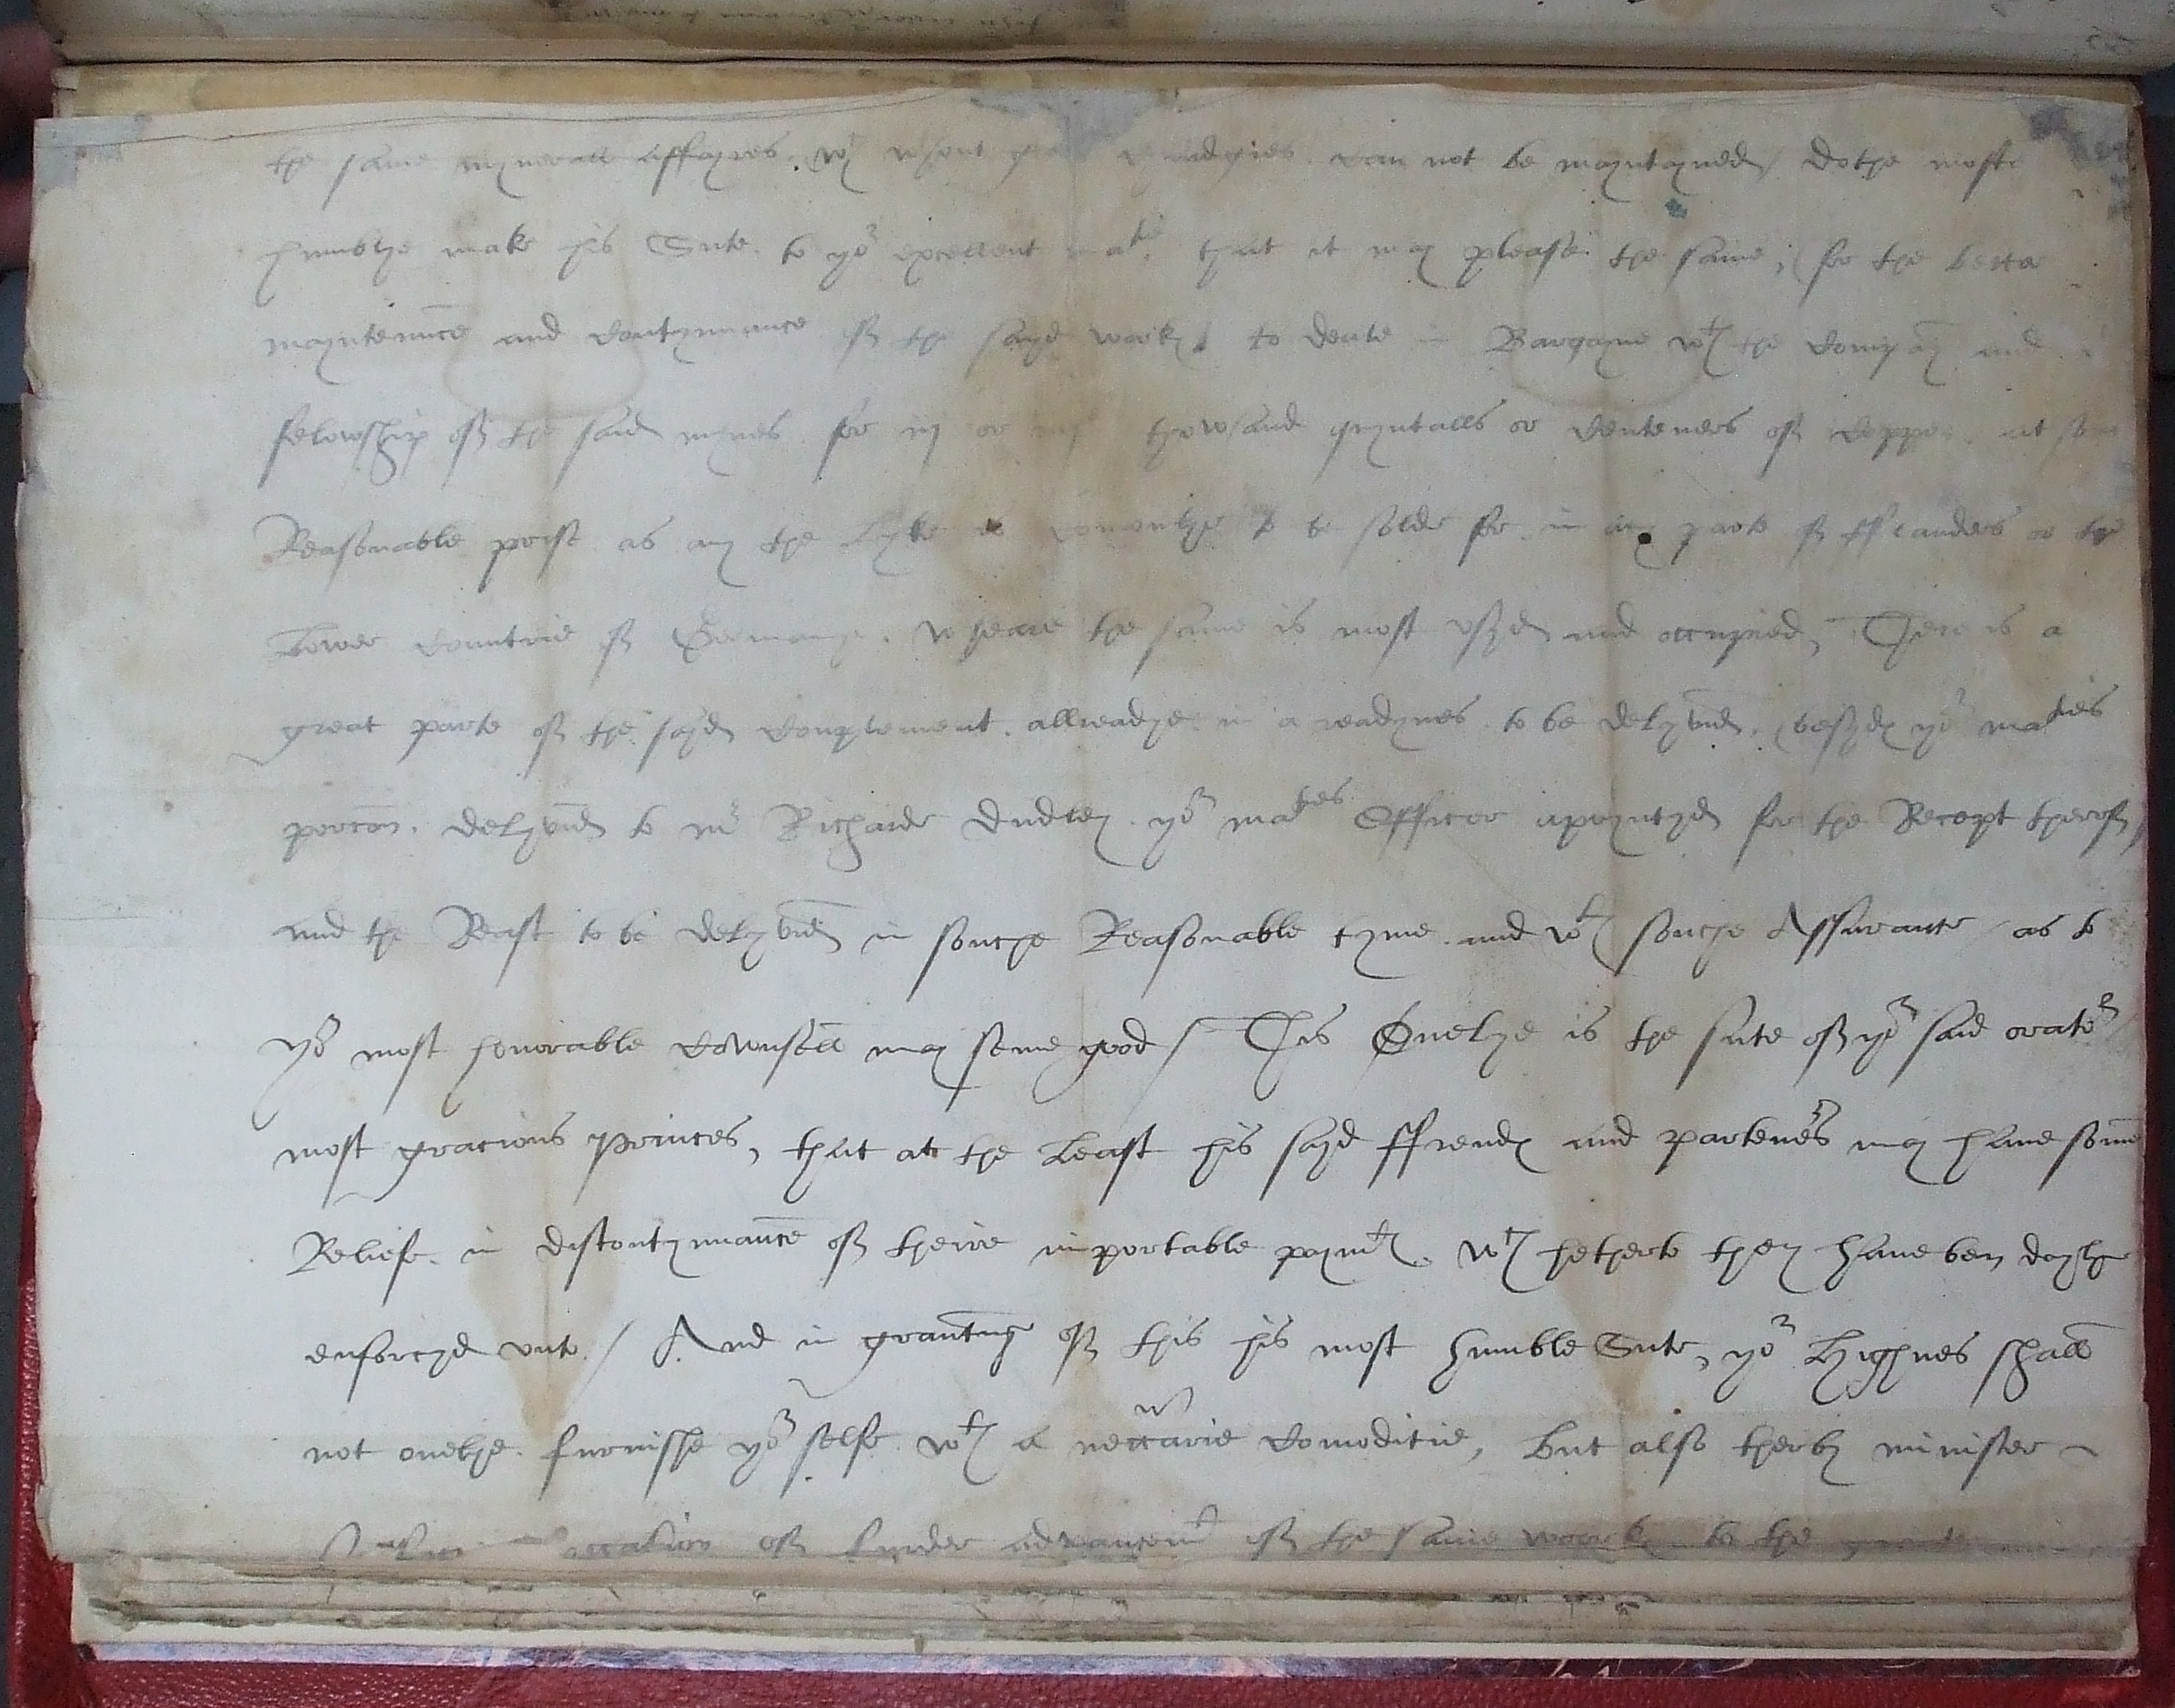 the same mynerall affayres. wch wthout great chardgies. can not be mayntayned / dothe moste
humblye make his Sute. to yor excellent matie. that it may please the same, for the better
mayntenuce and contynuance of the sayd works to deale in Bargayne wth the company and
felowship of the said mynes for iij or iiij thowsand quyntalls or centeners of copper. at som
Reasonable prise as any the lyke is comonlye to be solde for. in any parte of Fflanders or the
Lower countrie of Germanye. wheare the same is most usyd and occupied, There is a
great parte of the sayd complement. allreadye in a readynes to be delyverid. besydes yor maties
porcon. delyverid to mr Richarde Dudley. yor maties Officer apoyntyd for the Recept therof /
and the Reast to be delyverid in souche Reasonable tyme. and wth souche Assurance as to
yor most honorable cownsell may seme good / This Onelye is the sute of yor said orator
most gracious Princes, that at the Least his sayd ffrendes and parteners may have some
Reliefe. in discontynuance of theire importable paymtes. wch hetherto they have ben daylye
enforcyd unto. / And in grauntinge of this his most humble Sute, yor Highnes shall
not onelye. furnishe yor selfe wth a neccarie comoditie, but also therby minister
occasion of furder advancemt of the same works to the